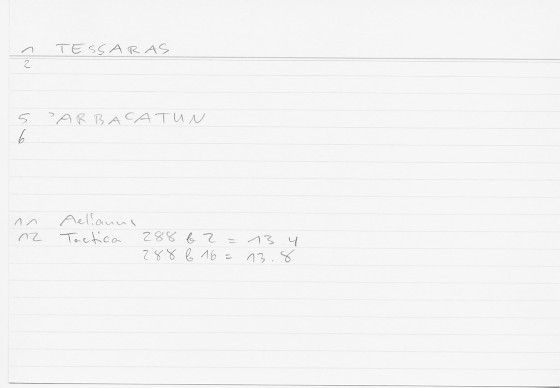 1 TESSARAS
2
5 ʾARBAʿATUN
6
11 Aelianus
12 Tactica 288 b 2 = 13.4
288 b 16 = 13.8